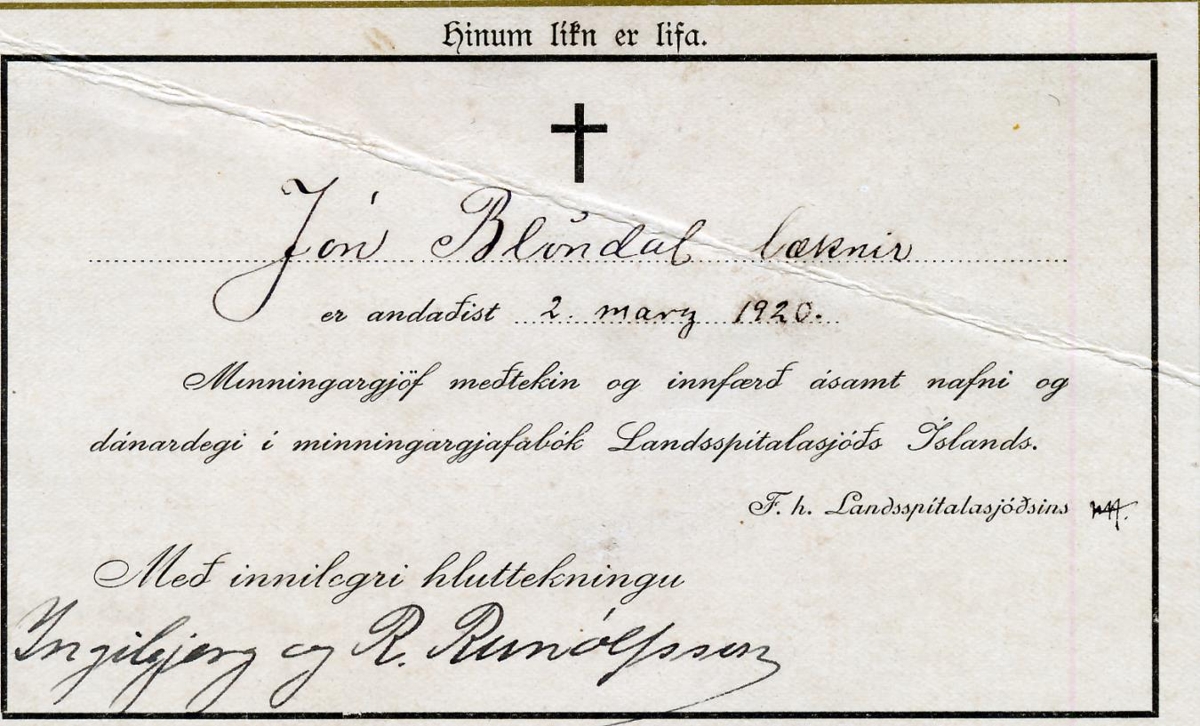 Hinum líkn er lifa.
Jón Blöndal læknir
er andaðist 2. marz 1920.
Minningargjöf meðtekin og innfærð ásamt nafni og
dánardegi í minningargjafabók Landsspítalasjóðs Íslands.
F. h. Landsspítalasjóðsins
Með innilegri hluttekningu
Ingibjörg og R. Runólfsson